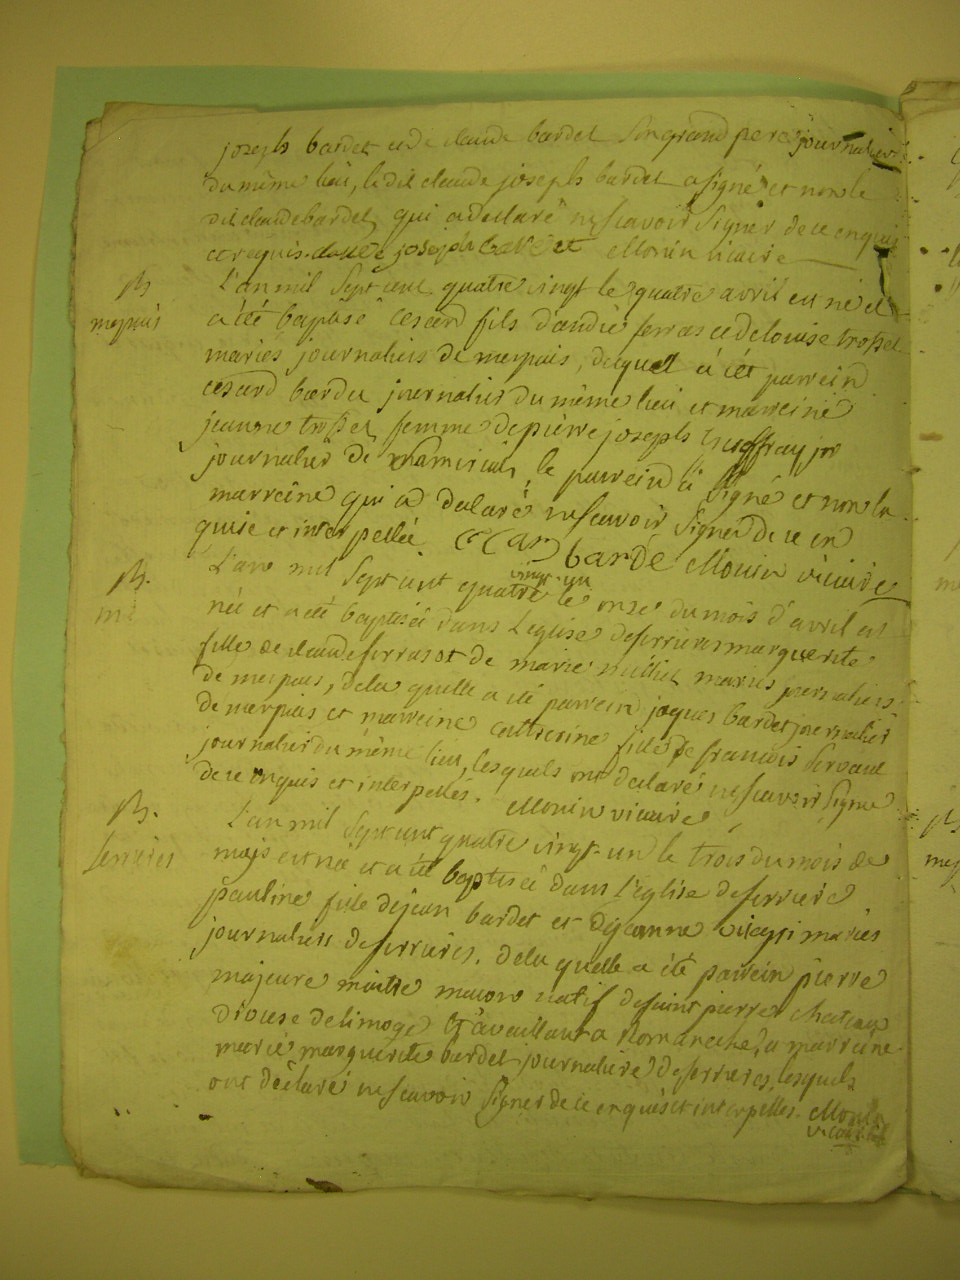 joseph bardet et de claude bardet son grand pere journalier
du même lieu, le dit claude joseph bardet a signé et non le
dit claude bardet qui a declaré ne scavoir signer de ce enquis
et requis. claude joseph bardet Monin vicaire
B
merpuis
L'an mil sept cent quatre vingt le quatre avril est né et
a été baptisé cesard fils d'andré ferras et de louise trosset
mariés journaliers de merpuis, duquel a été parrein
cesard bardet journalier du même lieu et marreine
jeanne trosset femme de pierre joseph
journalier de le parrein a signé et non la
marreine qui a declaré ne scavoir signer de ce en
quise et interpellée bardé Monin vicaire
B.
L'an mil sept cent quatre vingt-un le onze du mois d'avril est
née et a été baptisée dans l'eglise de ferrieres marguerite
fille de claude ferras et de marie millet mariés journaliers
de merpuis, de la quelle a été parrein jaques bardet journalier
de merpuis et marreine catherine fille de francois
journalier du même lieu, lesquels ont declaré ne scavoir signer
de ce enquis et interpellés. Monin vicaire
B.
ferrieres
L'an mil sept cent quatre vingt-un le trois du mois de
may est née et a été baptisée dans l'eglise de ferriere
pauline fille de jean bardet et de jeanne mariés
journaliers de ferrières. de la quelle a été parrein pierre
majeure maitre macon natif de saint pierre chateau
diocese de limoge travaillant a Romaneche, a marreine
marie marguerite bardet journaliere de ferrieres, lesquels
ont déclaré ne scavoir signer de ce enquis et interpellés. Monin
vicaire